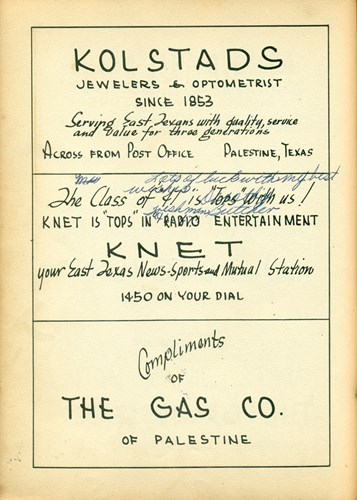 KOLSTADS
JEWELERS & OPTOMETRIST
SINCE 1853
Serving East Texans with quality, service
and value for three generations
ACROSS FROM POST OFFICE PALESTINE, TEXAS
Lots of luck with my best
wishes
The Class of 41 is "Tops" with us!
KNET IS "TOPS" IN RADIO ENTERTAINMENT
KNET
your East Texas News-Sports and Mutual Station
1450 ON YOUR DIAL
Compliments
OF
THE GAS CO.
OF PALESTINE